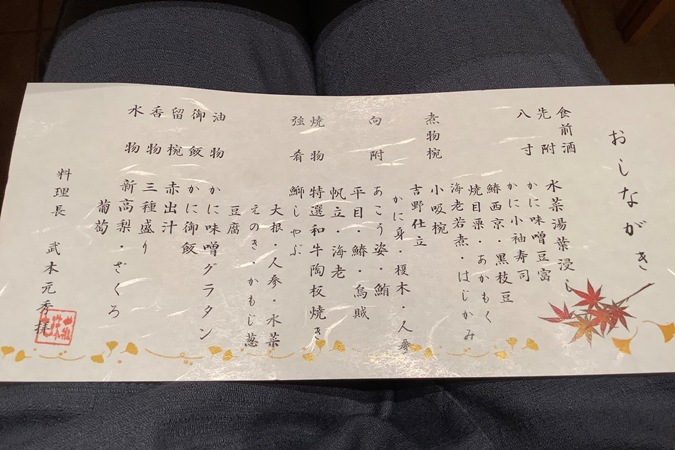 おしながき
食前酒
先附 水菜湯葉浸し
八寸 かに味噌豆富
かに小袖寿司
鰆西京・黒枝豆
焼目栗・あかもく
海老若煮・はじかみ
煮物椀 小吸椀
吉野仕立
かに身・榎木・人参
向附 あこう姿・鮪
平目・鰆・烏賊
帆立・海老
焼物 特選和牛陶板焼き
強肴 鰤しゃぶ
大根・人参・水菜
えのき かもじ葱
豆腐
油物 かに味噌グラタン
御飯 かに御飯
留椀 赤出汁
香物 三種盛り
水物 新高梨・ざくろ
葡萄
料理長 武木元秀 拝